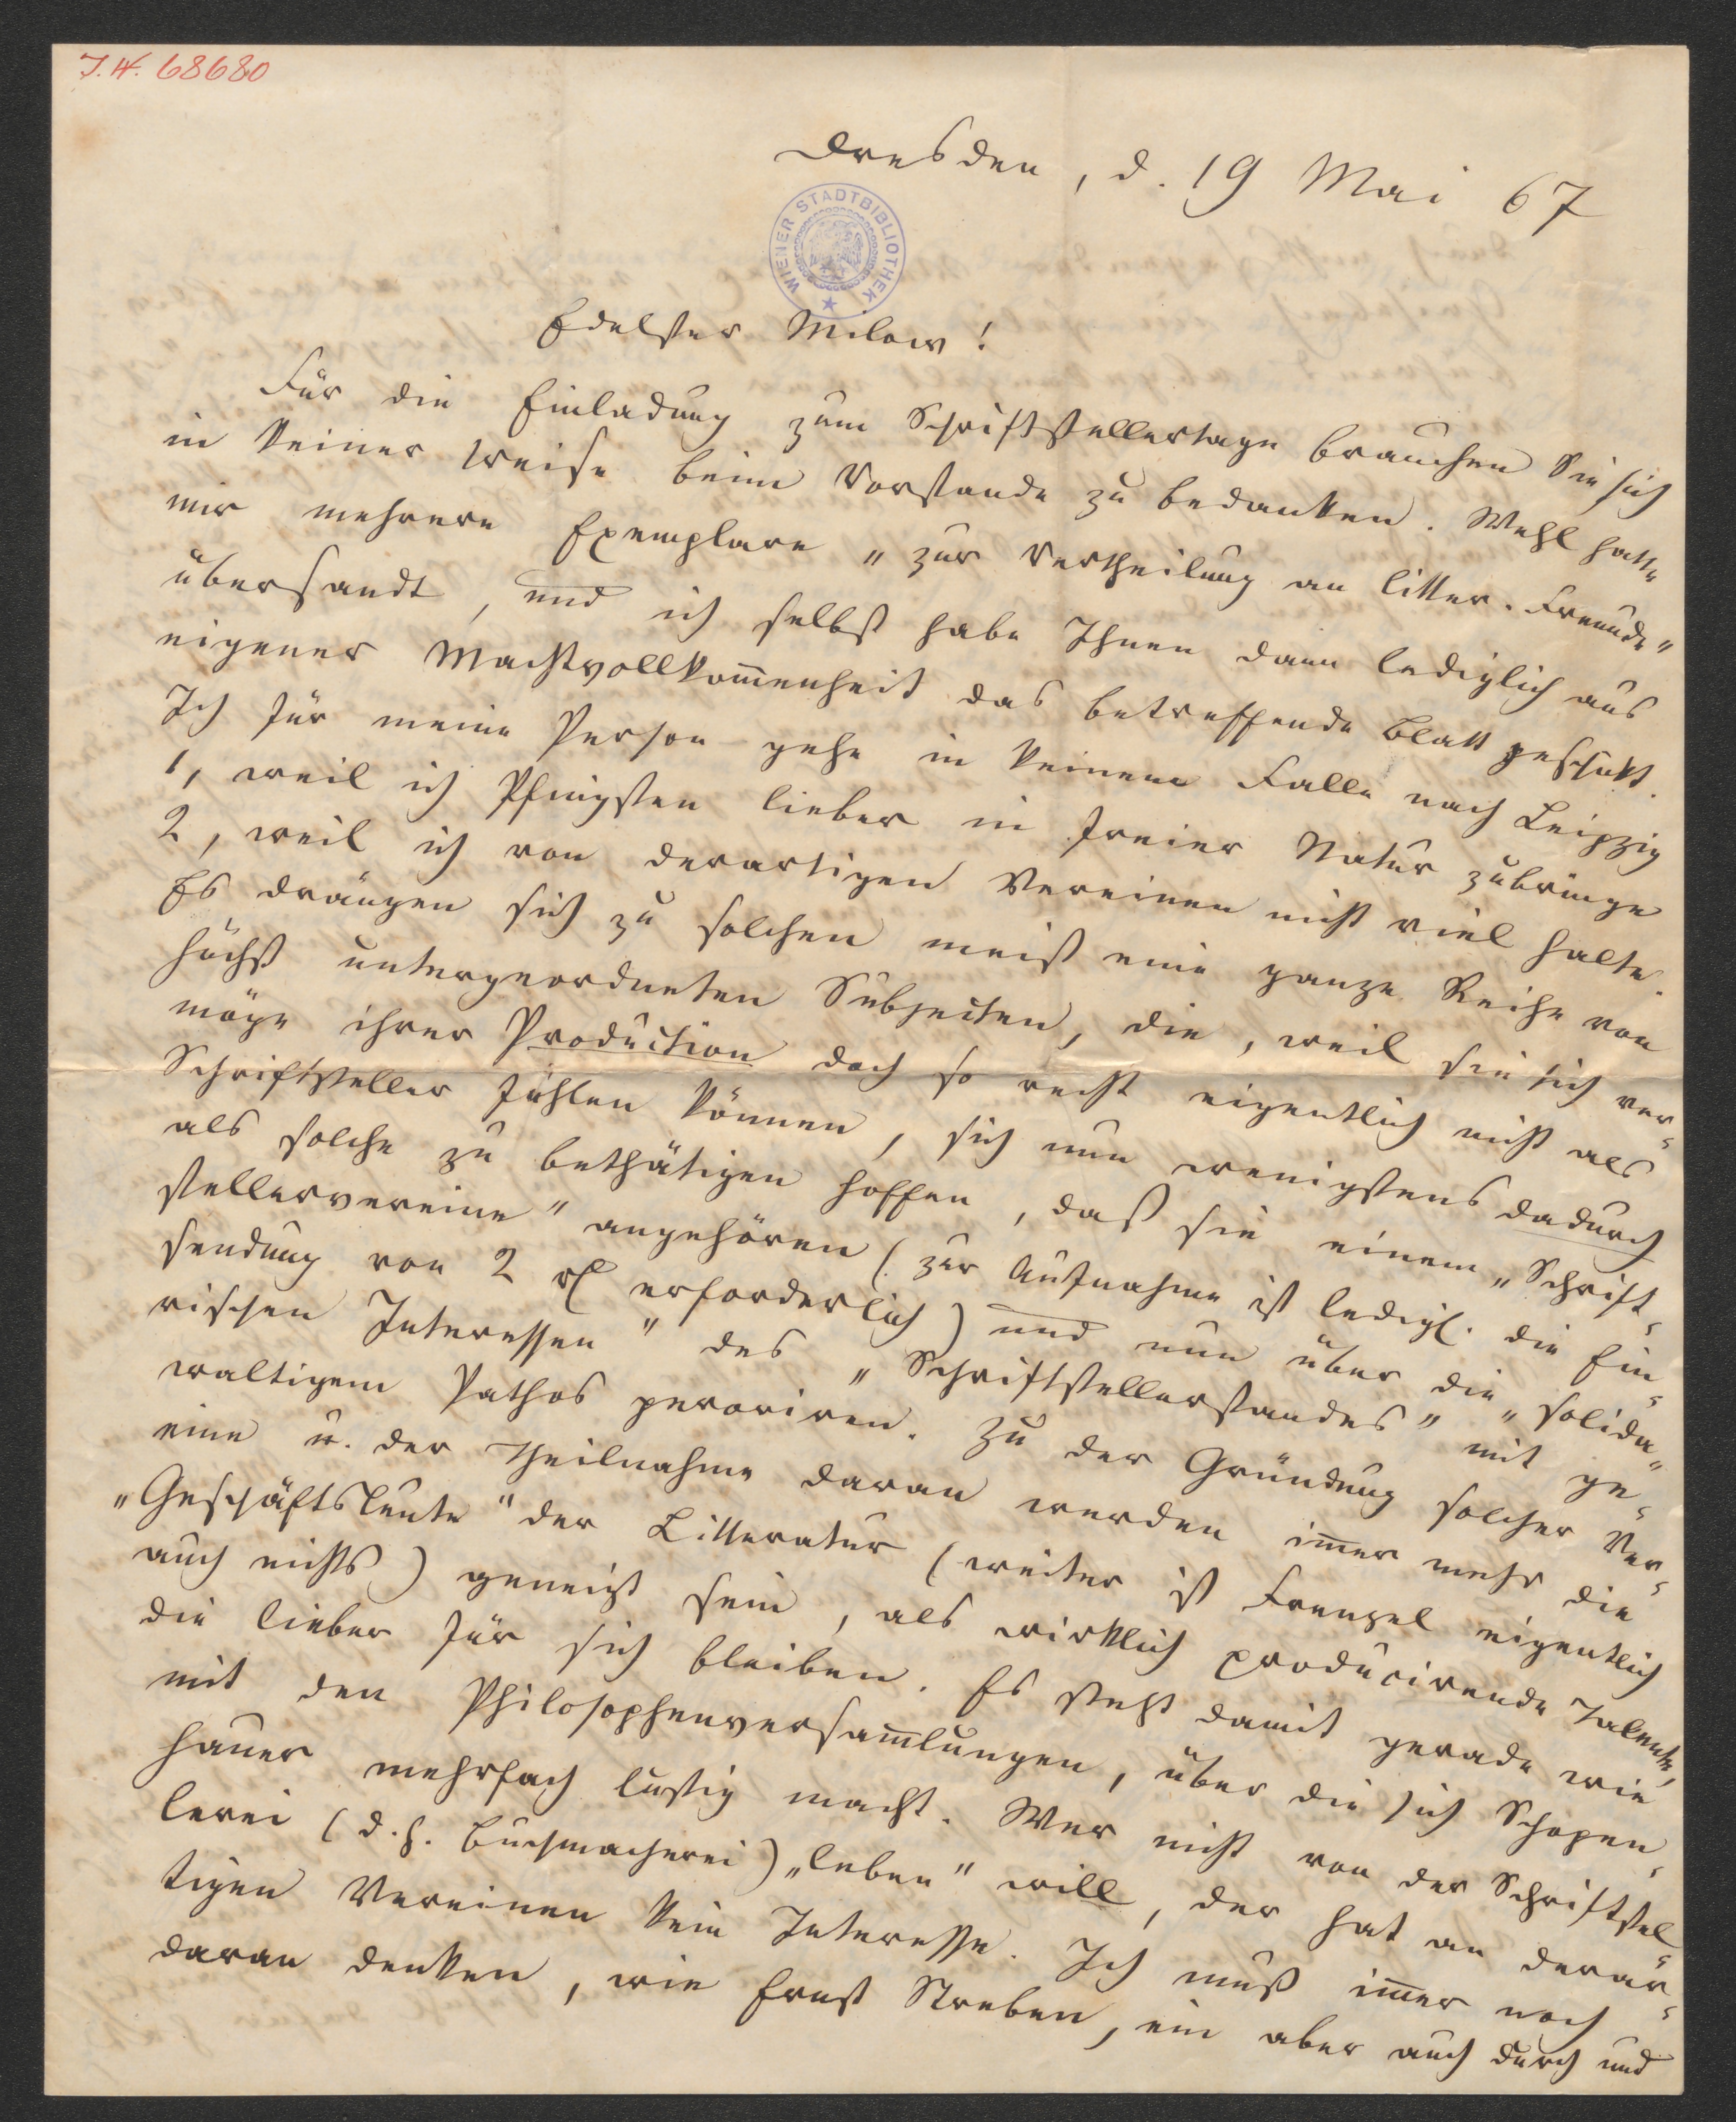 J.N. 68680
Dresden, d. 19 Mai 67
WIENER STADTBIBLIOTHEK
Edelster Milow!
Für die Einladung zum Schriftstellertage brauchen Sie sich
in keiner Weise beim Vorstande zu bedanken. Wehl hatte
mir mehrere Exemplare "zur Vertheilung an litter. Freunde"
übersandt, und ich selbst habe Ihnen dann lediglich aus
eigener Machtvollkom̅enheit das betreffende Blatt geschickt.
Ich für meine Person gehe in keinem Falle nach Leipzig
1, weil ich Pfingsten lieber in freier Natur zubringe
2, weil ich von derartigen Vereinen nicht viel halte.
Es drängen sich zu solchen meist eine ganze Reihe von
höchst untergeordneten Subjecten, die, weil sie sich ver-
möge ihrer Production doch so recht eigentlich nicht als
Schriftsteller fühlen können, sich nun wenigstens dadurch
als solche zu bethätigen hoffen, daß sie einem "Schrift-
stellervereine" angehören (zur Aufnahme ist ledigl. die Ein-
sendung von 2 rl erforderlich) und nun über die "solida-
rischen Interessen" des "Schriftstellerstandes" mit ge-
waltigem Pathos peroriren. Zu der Gründung solcher Ver-
eine u. der Theilnahme daran werden im̅er mehr die
"Geschäftsleute" der Litteratur (weiter ist Frenzel eigentlich
auch nichts) geneigt sein, als wirklich producirende Talente,
die lieber für sich bleiben. Es steht damit gerade wie
mit den Philosophenversam̅lungen, über die sich Schopen-
hauer mehrfach lustig macht. Wer nicht von der Schriftstel-
lerei (d. h. Buchmacherei) "leben" will, der hat an derar-
tigen Vereinen kein Interesse. Ich muß im̅er noch
daran denken, wie Ernst Streben, ein aber auch durch und